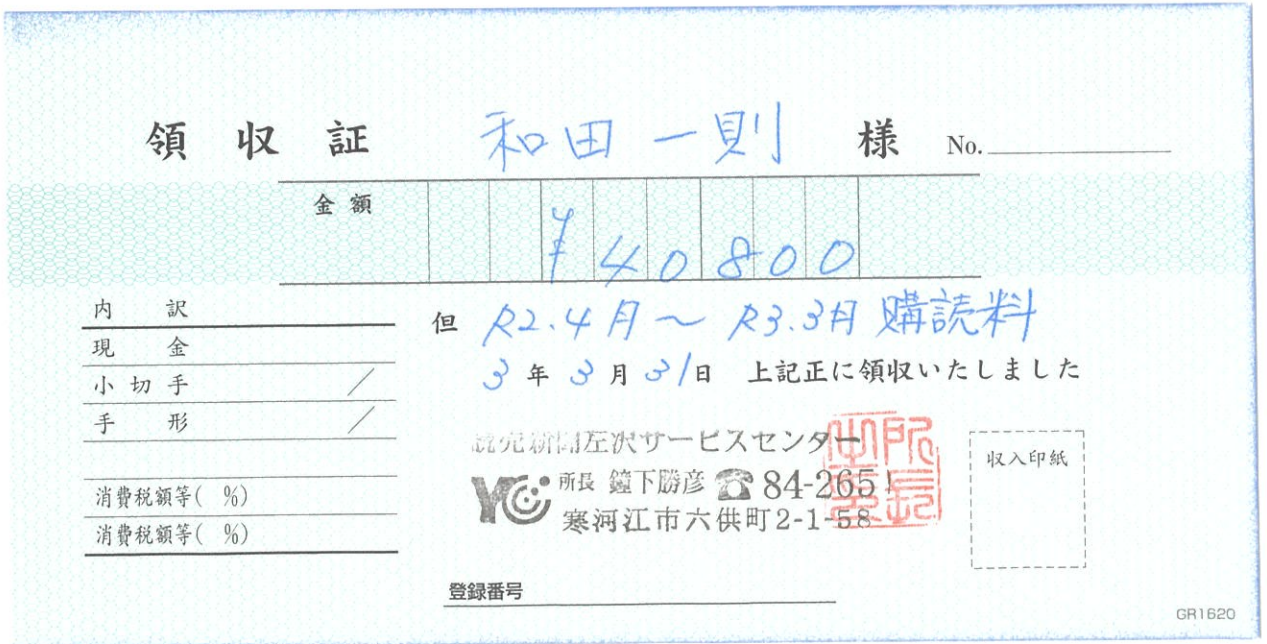 領収証 和田一則 様 No.
金額 ¥40800
内訳
現金
小切手 /
手形 /
消費税額等( %)
消費税額等( %)
但 R2.4月～R3.3月 購読料
3年3月31日 上記正に領収いたしました
読売新聞左沢サービスセンター
YC 所長 鐘下勝彦 ☎84-2651
寒河江市六供町2-1-58
収入印紙
登録番号
GR1620